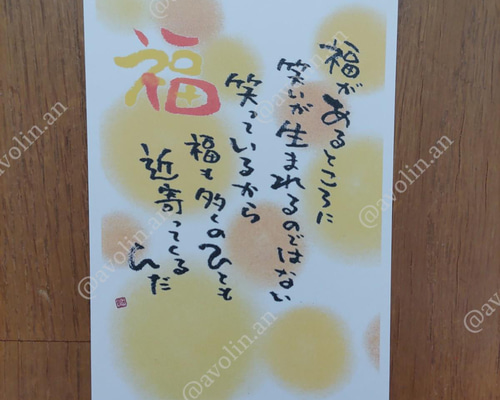 福
福があるところに
笑いが生まれるのではない
笑っているから
福も多くのひとも
近寄ってくる
んだ
@avolin.an
@avolin.an
@avolin.an
@avolin.an
@avolin.an
@avolin.an
@avolin.an